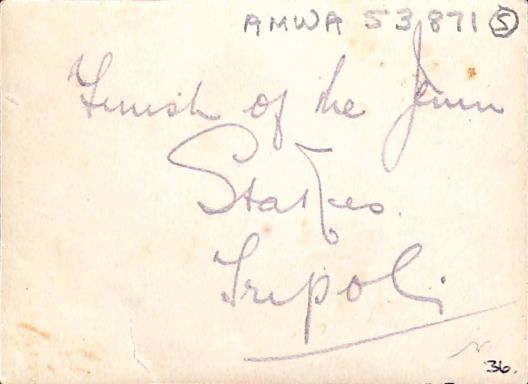 AMWA 53,871 5
Finish of the Jenin
Stakes.
Tripoli.
36.